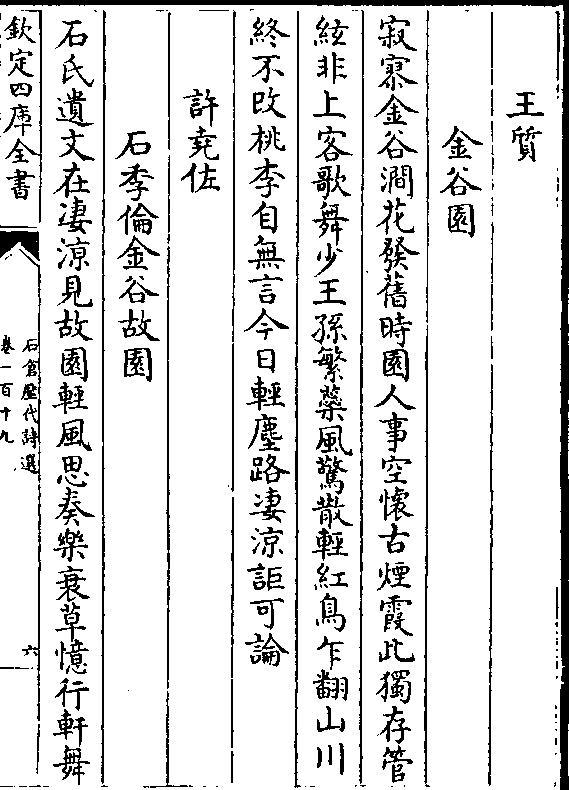 王質
金谷園
寂寞金谷澗花發舊時園人事空懷古煙霞此獨存管
絃非上客歌舞少王孫繁蘂風驚散輕紅鳥乍翻山川
終不改桃李自無言今日輕塵路凄涼詎可論
許堯佐
石季倫金谷故園
石氏遺文在凄涼見故園輕風思奏樂衰草憶行軒舞
欽定四庫全書
石倉歷代詩選
卷一百十九
六